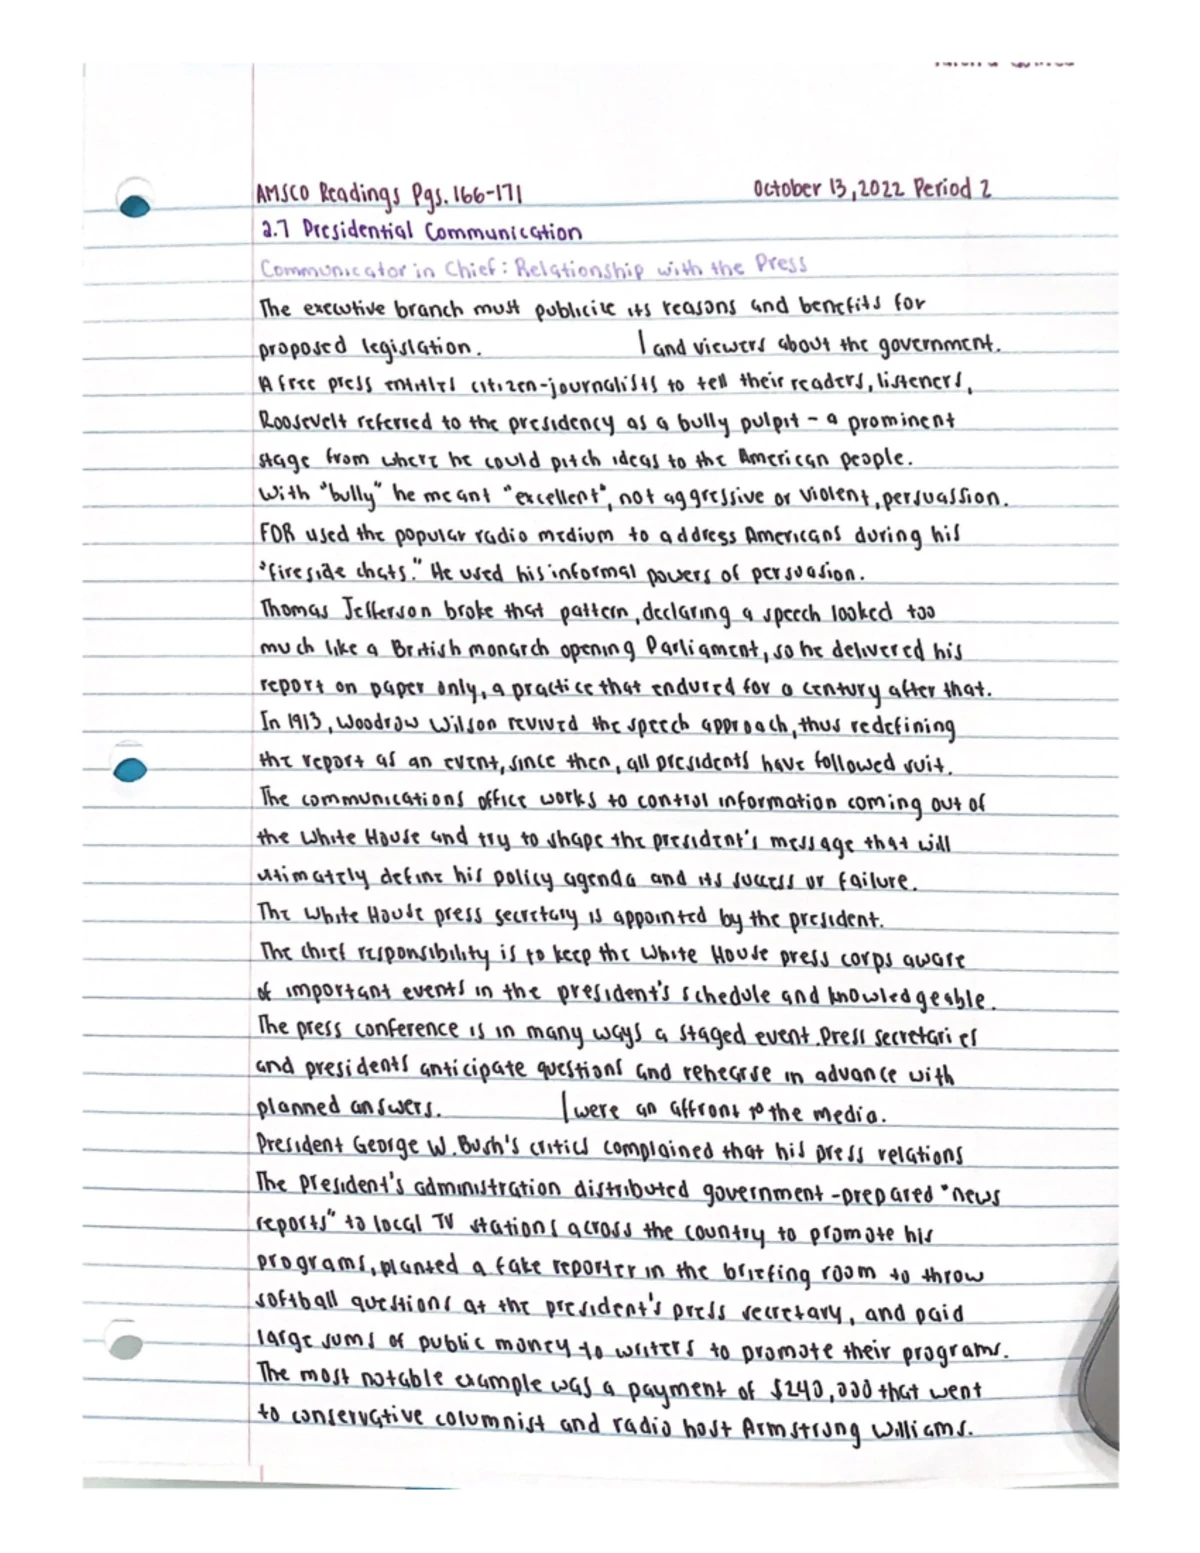 AMSCO Readings Pgs. 166-171
October 13, 2022 Period 2
2.7 Presidential Communication
Communicator in Chief: Relationship with the Press
The executive branch must publicize its reasons and benefits for
proposed legislation. | and viewers about the government.
A free press entitles citizen-journalists to tell their readers, listeners,
Roosevelt referred to the presidency as a bully pulpit - a prominent
stage from where he could pitch ideas to the American people.
With "bully" he meant "excellent", not aggressive or violent, persuassion.
FDR used the popular radio medium to address Americans during his
"fireside chats." He used his informal powers of persuasion.
Thomas Jefferson broke that pattern, declaring a speech looked too
much like a British monarch opening Parliament, so he delivered his
report on paper only, a practice that endured for a century after that.
In 1913, Woodrow Wilson revived the speech approach, thus redefining
the report as an event, since then, all presidents have followed suit.
The communications office works to control information coming out of
the White House and try to shape the president's message that will
ultimately define his policy agenda and its success or failure.
The White House press secretary is appointed by the president.
The chief responsibility is to keep the White House press corps aware
of important events in the president's schedule and knowledgeable.
The press conference is in many ways a staged event. Press secretaries
and presidents anticipate questions and rehearse in advance with
planned answers. | were an affront to the media.
President George W. Bush's critics complained that his press relations
The president's administration distributed government-prepared "news
reports" to local TV stations across the country to promote his
programs, planted a fake reporter in the briefing room to throw
softball questions at the president's press secretary, and paid
large sums of public money to writers to promote their programs.
The most notable example was a payment of $240,000 that went
to conservative columnist and radio host Armstrong Williams.